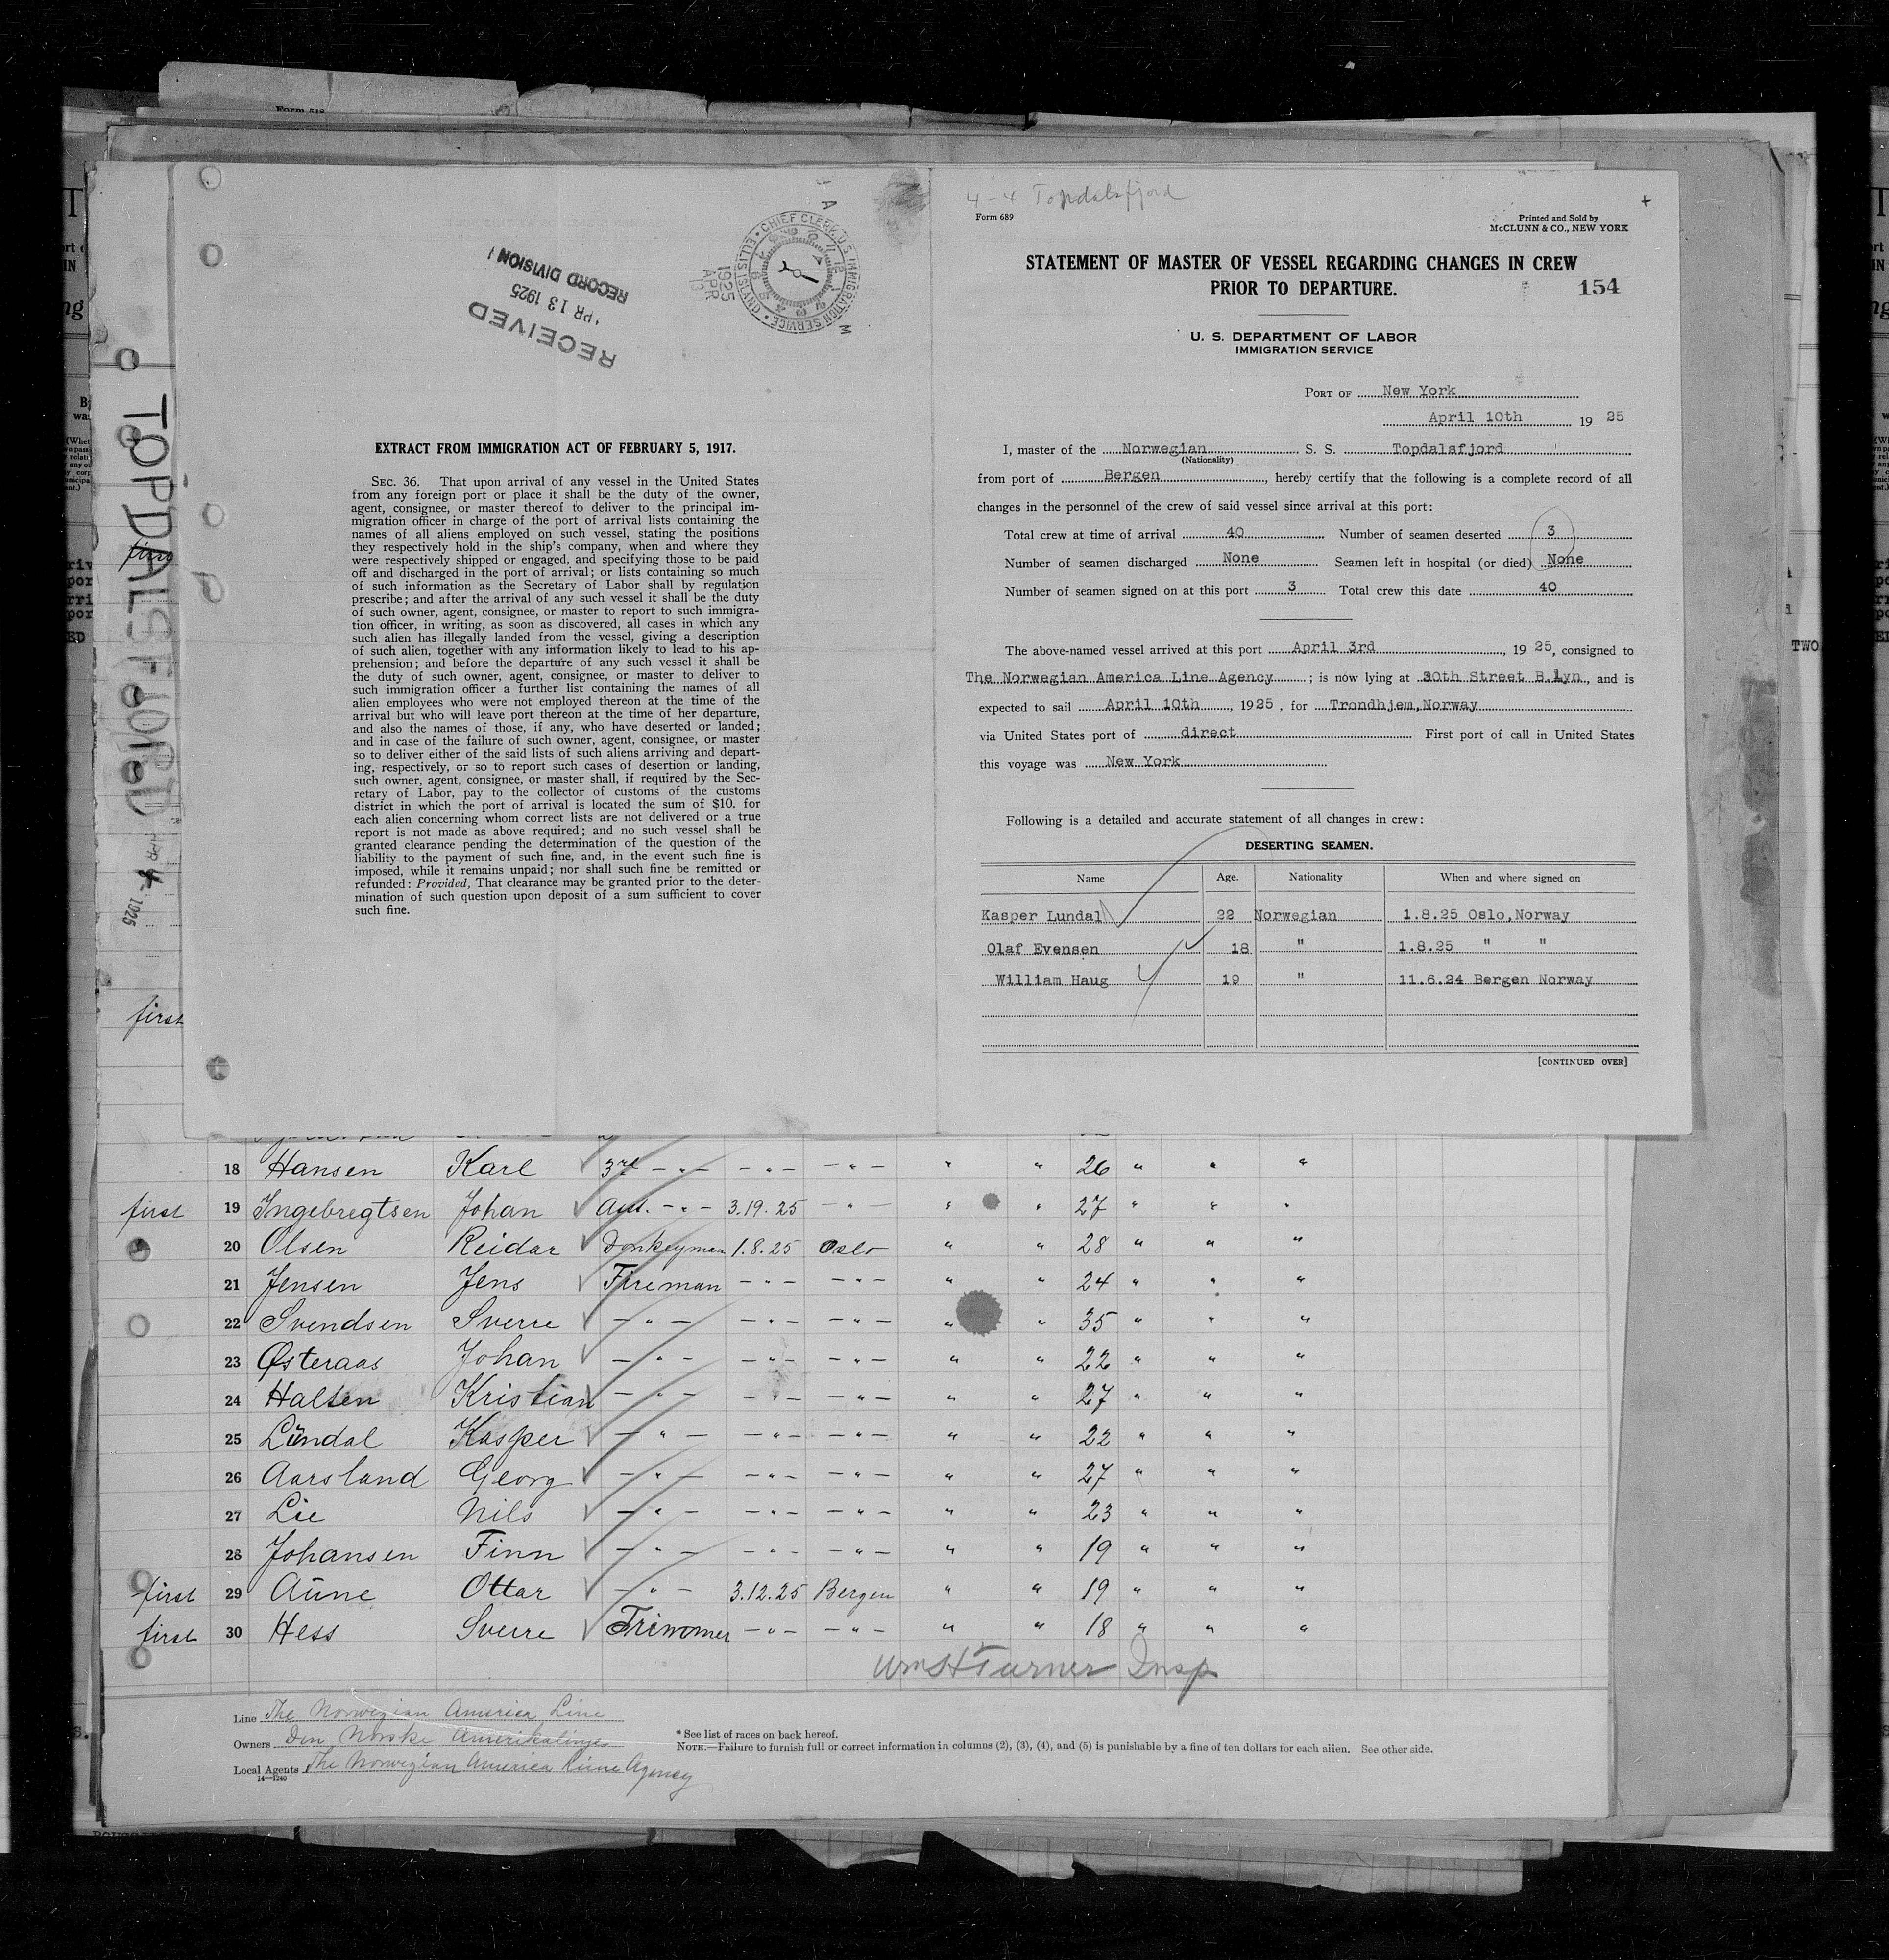 Form 618
4-4 Topdalsfjord
Form 689
Printed and Sold by
McCLUNN & CO., NEW YORK
STATEMENT OF MASTER OF VESSEL REGARDING CHANGES IN CREW
PRIOR TO DEPARTURE.
154
U. S. DEPARTMENT OF LABOR
IMMIGRATION SERVICE
PORT OF New York
April 10th 19 25
I, master of the Norwegian S. S. Topdalsfjord
(Nationality)
from port of Bergen, hereby certify that the following is a complete record of all
changes in the personnel of the crew of said vessel since arrival at this port:
Total crew at time of arrival 40 Number of seamen deserted 3
Number of seamen discharged None Seamen left in hospital (or died) None
Number of seamen signed on at this port 3 Total crew this date 40
The above-named vessel arrived at this port April 3rd, 19 25, consigned to
The Norwegian America Line Agency; is now lying at 30th Street B.lyn, and is
expected to sail April 10th, 1925, for Trondhjem, Norway
via United States port of direct First port of call in United States
this voyage was New York
Following is a detailed and accurate statement of all changes in crew:
DESERTING SEAMEN.
Name Age. Nationality When and where signed on
Kasper Lundal 22 Norwegian 1.8.25 Oslo, Norway
Olaf Evensen 18 " 1.8.25 " "
William Haug 19 " 11.6.24 Bergen Norway
[CONTINUED OVER]
RECEIVED
APR 13 1925
RECORD DIVISION
CHIEF CLERK, U.S. IMMIGRATION SERVICE • ELLIS ISLAND •
1925
APR
13
A M
EXTRACT FROM IMMIGRATION ACT OF FEBRUARY 5, 1917.
SEC. 36. That upon arrival of any vessel in the United States
from any foreign port or place it shall be the duty of the owner,
agent, consignee, or master thereof to deliver to the principal im-
migration officer in charge of the port of arrival lists containing the
names of all aliens employed on such vessel, stating the positions
they respectively hold in the ship's company, when and where they
were respectively shipped or engaged, and specifying those to be paid
off and discharged in the port of arrival; or lists containing so much
of such information as the Secretary of Labor shall by regulation
prescribe; and after the arrival of any such vessel it shall be the duty
of such owner, agent, consignee, or master to report to such immigra-
tion officer, in writing, as soon as discovered, all cases in which any
such alien has illegally landed from the vessel, giving a description
of such alien, together with any information likely to lead to his ap-
prehension; and before the departure of any such vessel it shall be
the duty of such owner, agent, consignee, or master to deliver to
such immigration officer a further list containing the names of all
alien employees who were not employed thereon at the time of the
arrival but who will leave port thereon at the time of her departure,
and also the names of those, if any, who have deserted or landed;
and in case of the failure of such owner, agent, consignee, or master
so to deliver either of the said lists of such aliens arriving and depart-
ing, respectively, or so to report such cases of desertion or landing,
such owner, agent, consignee, or master shall, if required by the Sec-
retary of Labor, pay to the collector of customs of the customs
district in which the port of arrival is located the sum of $10. for
each alien concerning whom correct lists are not delivered or a true
report is not made as above required; and no such vessel shall be
granted clearance pending the determination of the question of the
liability to the payment of such fine, and, in the event such fine is
imposed, while it remains unpaid; nor shall such fine be remitted or
refunded: Provided, That clearance may be granted prior to the deter-
mination of such question upon deposit of a sum sufficient to cover
such fine.
TOPDALSFJORD
APR 4 - 1925
TWO
first
first
18 Hansen Karl 3rd - " - - " - - " - " " 26 " " "
first 19 Ingebregtsen Johan Ast. - " - 3.19.25 - " - " " 27 " " "
20 Olsen Reidar Donkeyman 1.8.25 Oslo " " 28 " " "
21 Jensen Jens Fireman - " - - " - " " 24 " " "
22 Svendsen Sverre - " - - " - - " - " " 35 " " "
23 Østeraas Johan - " - - " - - " - " " 22 " " "
24 Halten Kristian - " - - " - - " - " " 27 " " "
25 Lundal Kasper - " - - " - - " - " " 22 " " "
26 Aarsland Georg - " - - " - - " - " " 27 " " "
27 Lie Nils - " - - " - - " - " " 23 " " "
28 Johansen Finn - " - - " - - " - " " 19 " " "
first 29 Aune Ottar - " - 3.12.25 Bergen " " 19 " " "
first 30 Hess Sverre Trimmer - " - - " - " " 18 " " "
Wm H Turner Insp
Line The Norwegian America Line
Owners Den Norske Amerikalinje
Local Agents The Norwegian America Line Agency
14—1240
* See list of races on back hereof.
NOTE.—Failure to furnish full or correct information in columns (2), (3), (4), and (5) is punishable by a fine of ten dollars for each alien. See other side.